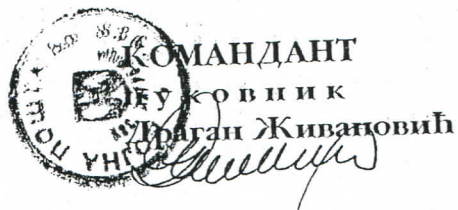 КОМАНДАНТ
пуковник
Драган Живановић